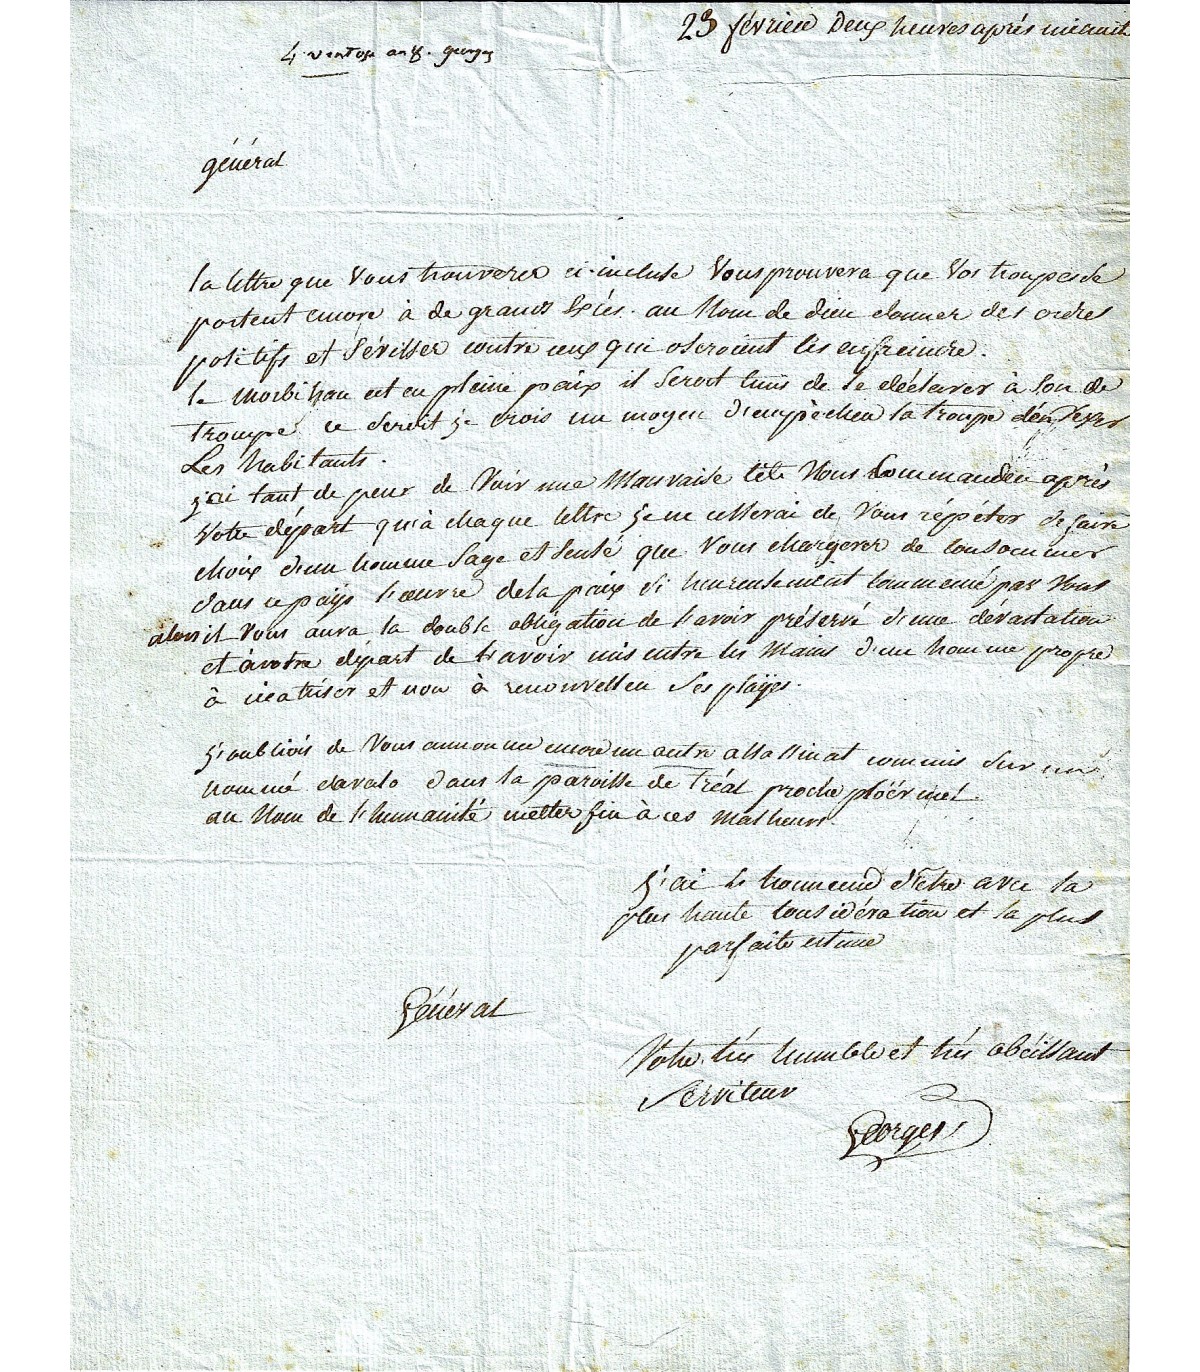 23 février Deux heures après minuit
4 ventose an 8. georges
général
la lettre que Vous trouverez ci-incluse Vous prouvera que Vos troupes se
portent encore à de grands Exiés. au Nom de dieu donner des ordres
positifs et Sévisser contre ceux qui oseroient les enfreindre.
le morbihan est en pleine paix il Seroit tems de le déclarer à Son de
trompe ce Seroit je crois un moyen d'empècher la troupe de vexer
Les habitants.
j'ai tant de peur de Voir une Mauvaise tète Nous Commander après
Votre départ qu'à chaque lettre je ne cesserai de Vous répéter de faire
choix d'un homme Sage et Sensé que Vous chargerez de consommer
dans ce païs l'oeuvre de la paix Si heureusement commencé par Vous
alors il Vous aura la double obligation de l'avoir préservé d'une dévastation
et à votre départ de l'avoir mis entre les Mains d'un homme propre
à cicatriser et non à renouveller Ses playes.
j'oubliois de Vous annoncer encore un autre assassinat commis Sur un
nommé davalo dans la paroisse de tréal proche ploërmel.
au Nom de l'humanité metter fin à ces malheurs.
j'ai le honneur d'être avec la
plus haute considération et la plus
parfaite estime
Général
Votre très humble et très obéissant
Serviteur
Georges